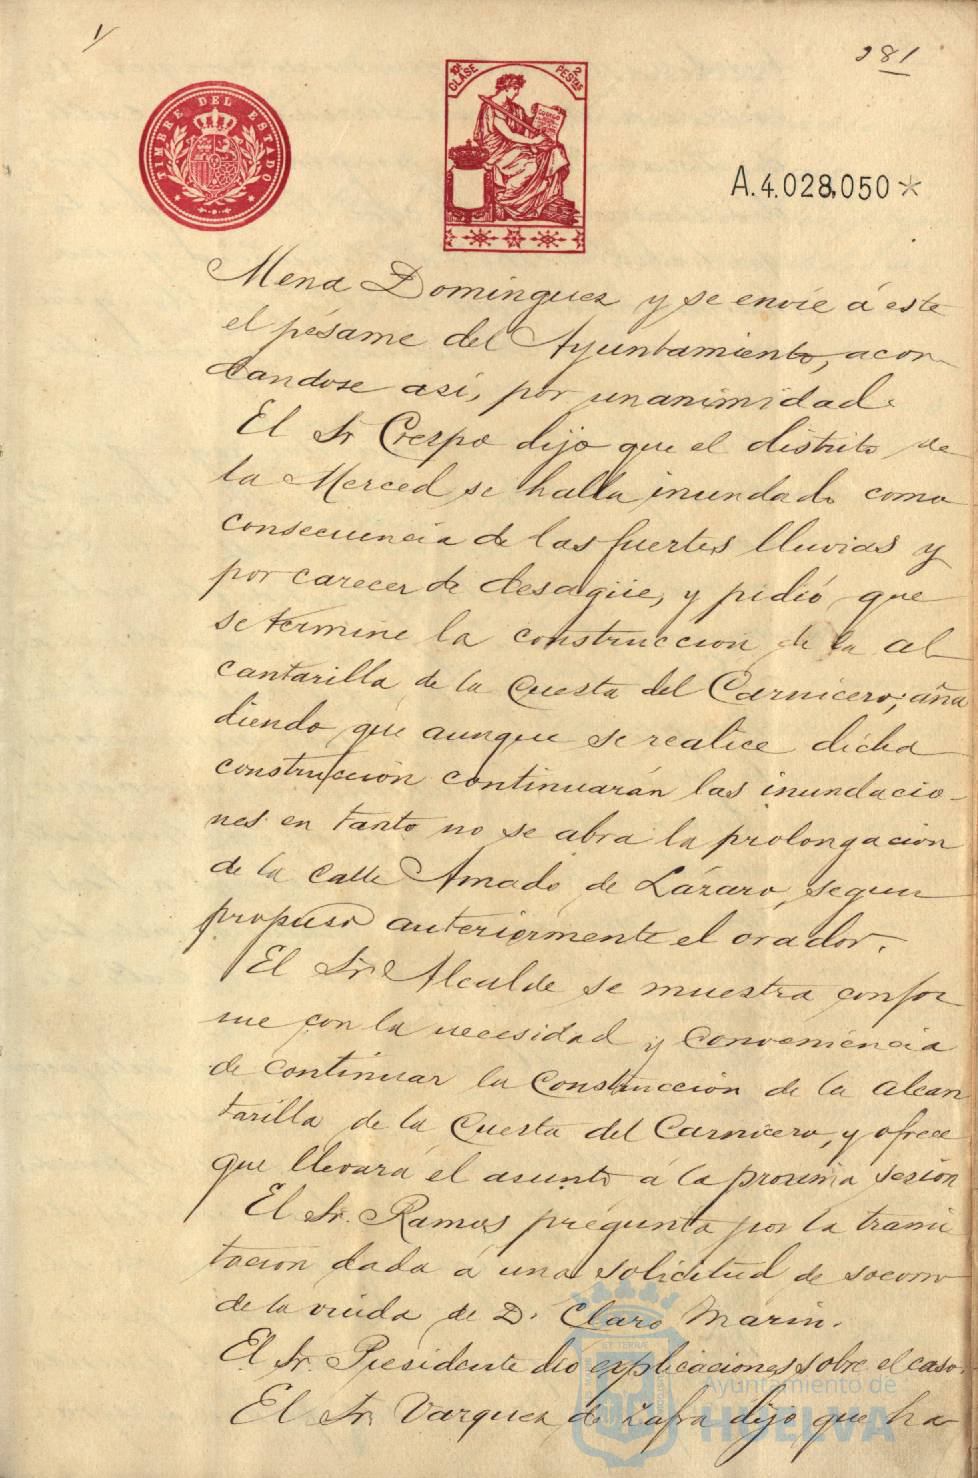 1/
281
TIMBRE DEL ESTADO
10ª CLASE
2 PESTAS
A.4.028,050*
Mena Dominguez y se envie á este
el pésame del Ayuntamiento, acor-
dandose asi, por unanimidad.
El Sr Crespo dijo que el distrito de
la Merced se halla inundado como
consecuencia de las fuertes lluvias y
por carecer de desagüe, y pidió que
se termine la construccion de la al
cantarilla de la Cuesta del Carnicero; aña
diendo que aunque se realice dicha
construcción continuarán las inundacio-
nes en tanto no se abra la prolongacion
de la calle Amado de Lázaro, segun
propuso anteriormente el orador.
El Sr. Alcalde se muestra confor
me con la necesidad y conveniencia
de continuar la construcción de la alcan
tarilla de la Cuesta del Carnicero, y ofrece
que llevará el asunto á la proxima sesion
El Sr. Ramos pregunta por la trami
tacion dada á una solicitud de socorro
de la viuda de D. Claro Marin.
El Sr. Presidente dió explicaciones sobre el caso.
El Sr. Vazquez de Zafra dijo que ha-
Ayuntamiento de
HUELVA